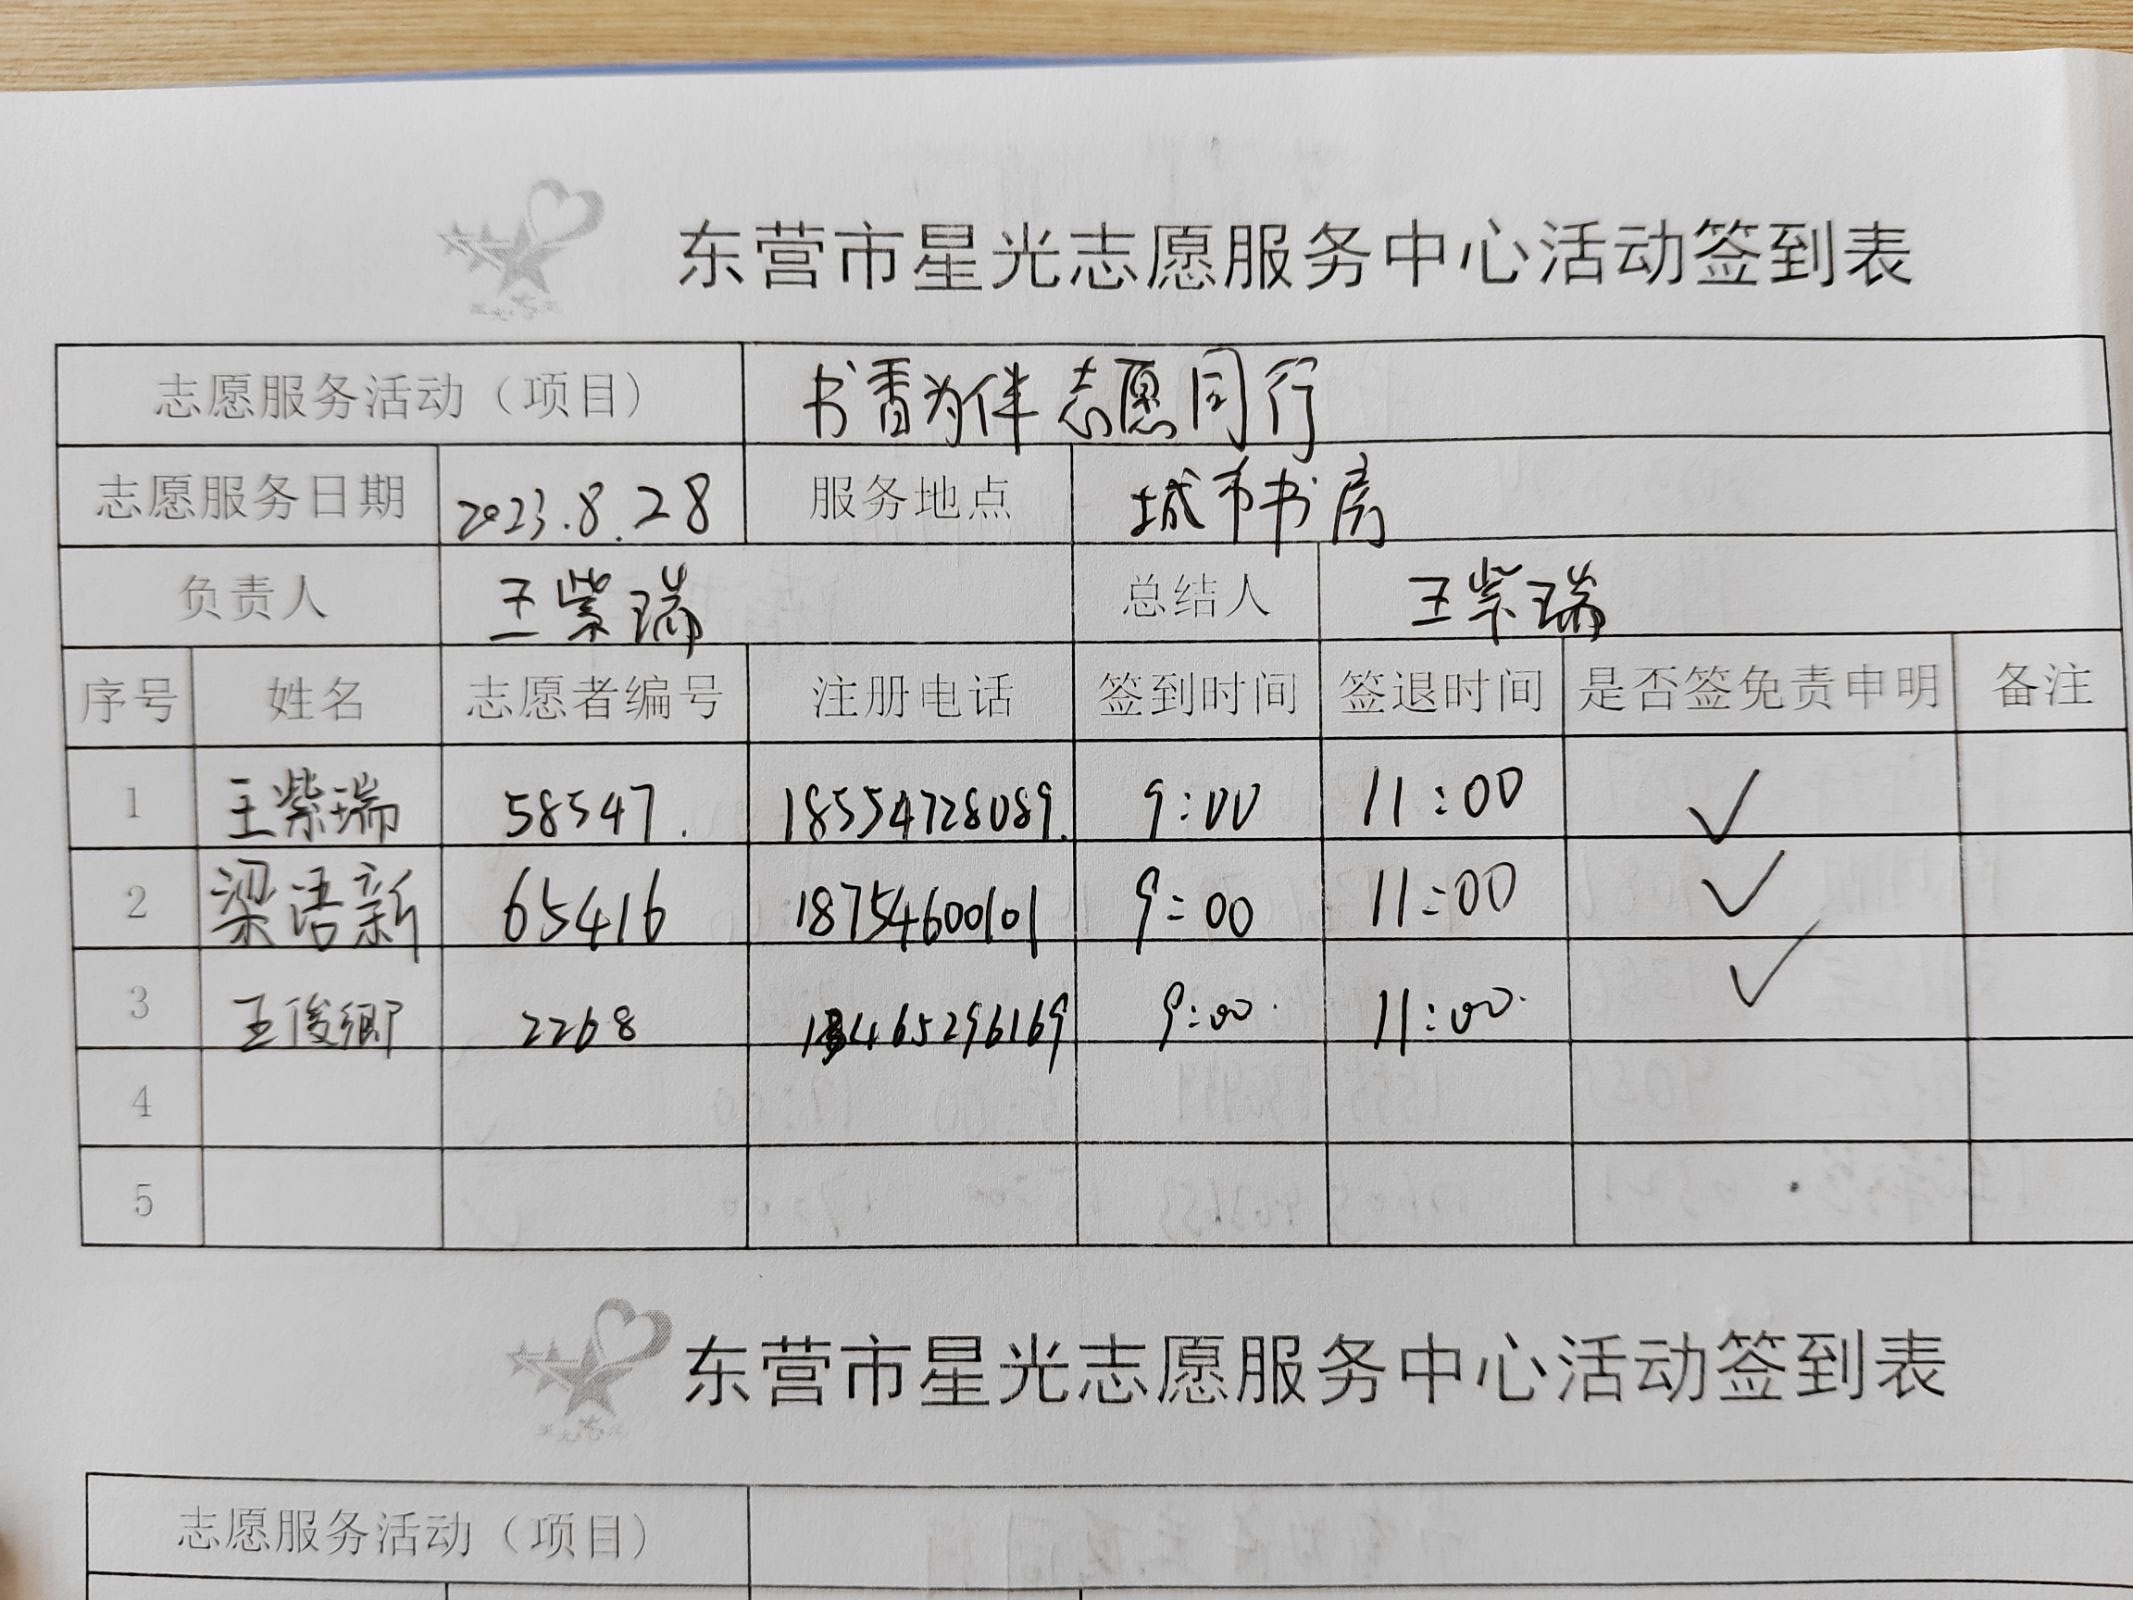 东营市星光志愿服务中心活动签到表
志愿服务活动（项目） 书香为伴 志愿同行
志愿服务日期 2023.8.28 服务地点 城市书房
负责人 王紫瑞 总结人 王紫瑞
序号 姓名 志愿者编号 注册电话 签到时间 签退时间 是否签免责申明 备注
1 王紫瑞 58547. 18554728089. 9:00 11:00 ✓
2 梁语新 65416 18754600101 9:00 11:00 ✓
3 王俊卿 2268 9:00 11:00 ✓
4
5
东营市星光志愿服务中心活动签到表
志愿服务活动（项目）